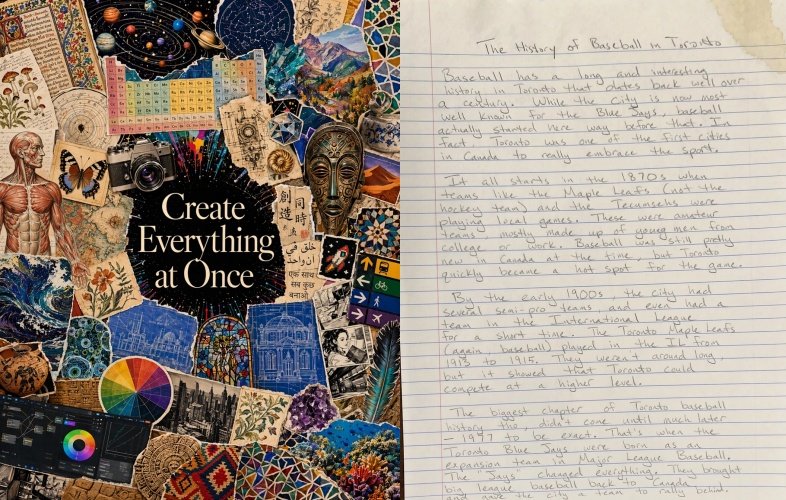 Create
Everything
at Once
創造
同時
خلق في
آن واحد
एक साथ
सब कुछ
बनाओ
The History of Baseball in Toronto
Baseball has a long and interesting
history in Toronto that dates back well over
a century. While the city is now most
well known for the Blue Jays, baseball
actually started here way before that. In
fact, Toronto was one of the first cities
in Canada to really embrace the sport.
It all starts in the 1870s when
teams like the Maple Leafs (not the
hockey team) and the Tecumsehs were
playing local games. These were amateur
teams mostly made up of young men from
college or work. Baseball was still pretty
new in Canada at the time, but Toronto
quickly became a hot spot for the game.
By the early 1900s, the city had
several semi-pro teams, and even had a
team in the International League
for a short time. The Toronto Maple Leafs
(again, baseball) played in the IL from
1913 to 1915. They weren't around long,
but it showed that Toronto could
compete at a higher level.
The biggest chapter of Toronto baseball
history tho, didn't come until much later
– 1977 to be exact. That's when the
Toronto Blue Jays were born as an
expansion team in Major League Baseball.
The Jays changed everything. They brought
big league baseball back to Canada
and gave the city a team to rally behind.